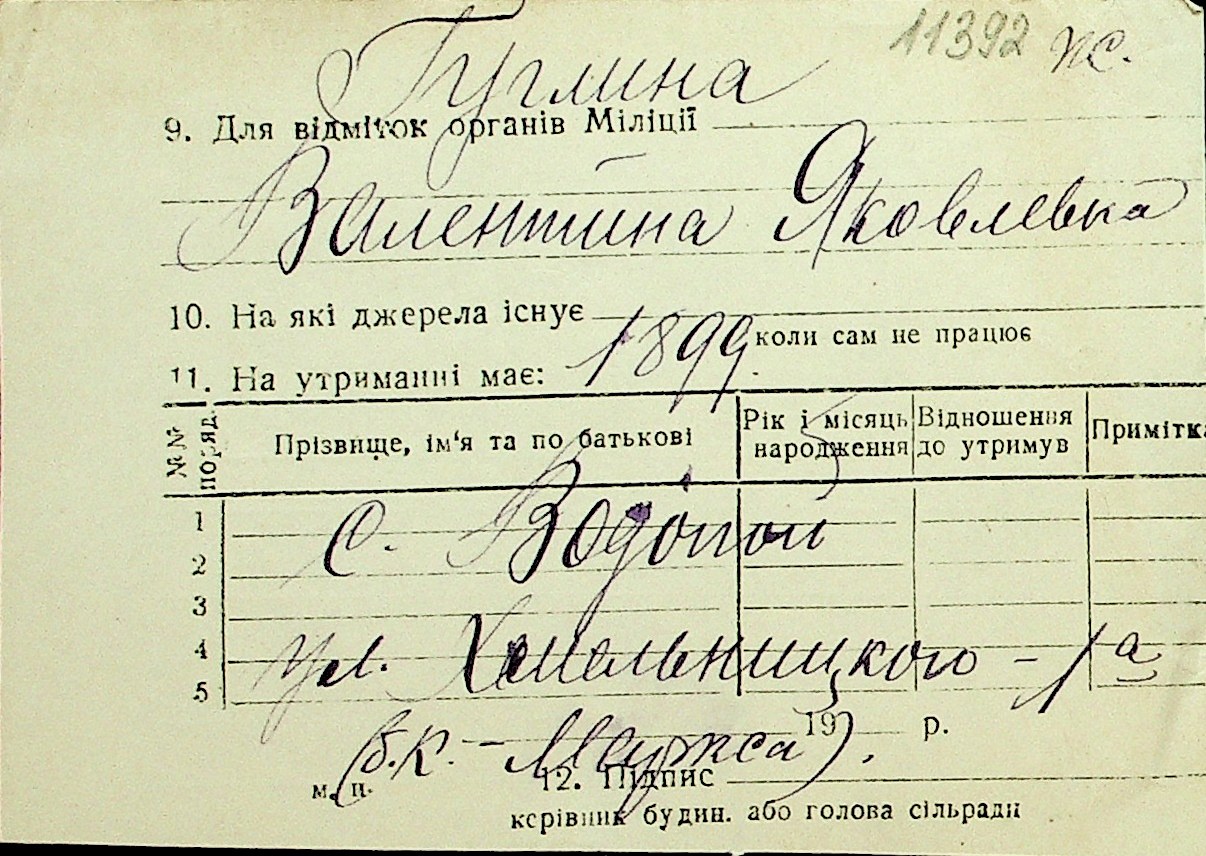 11392 пс.
Гуглина
9. Для відміток органів Міліції
Валентина Яковлевна
10. На які джерела існує
коли сам не працює
11. На утриманні має: 1899
№№ поряд. Прізвище, ім‘я та по батькові Рік і місяць народження Відношення до утримув Примітка
1
с. Водопой
2
3
4
ул. Хмельницкого - 1а
5
19 р.
(б.К. - Маркса).
м. п. 12. Підпис
керівник будин. або голова сільради